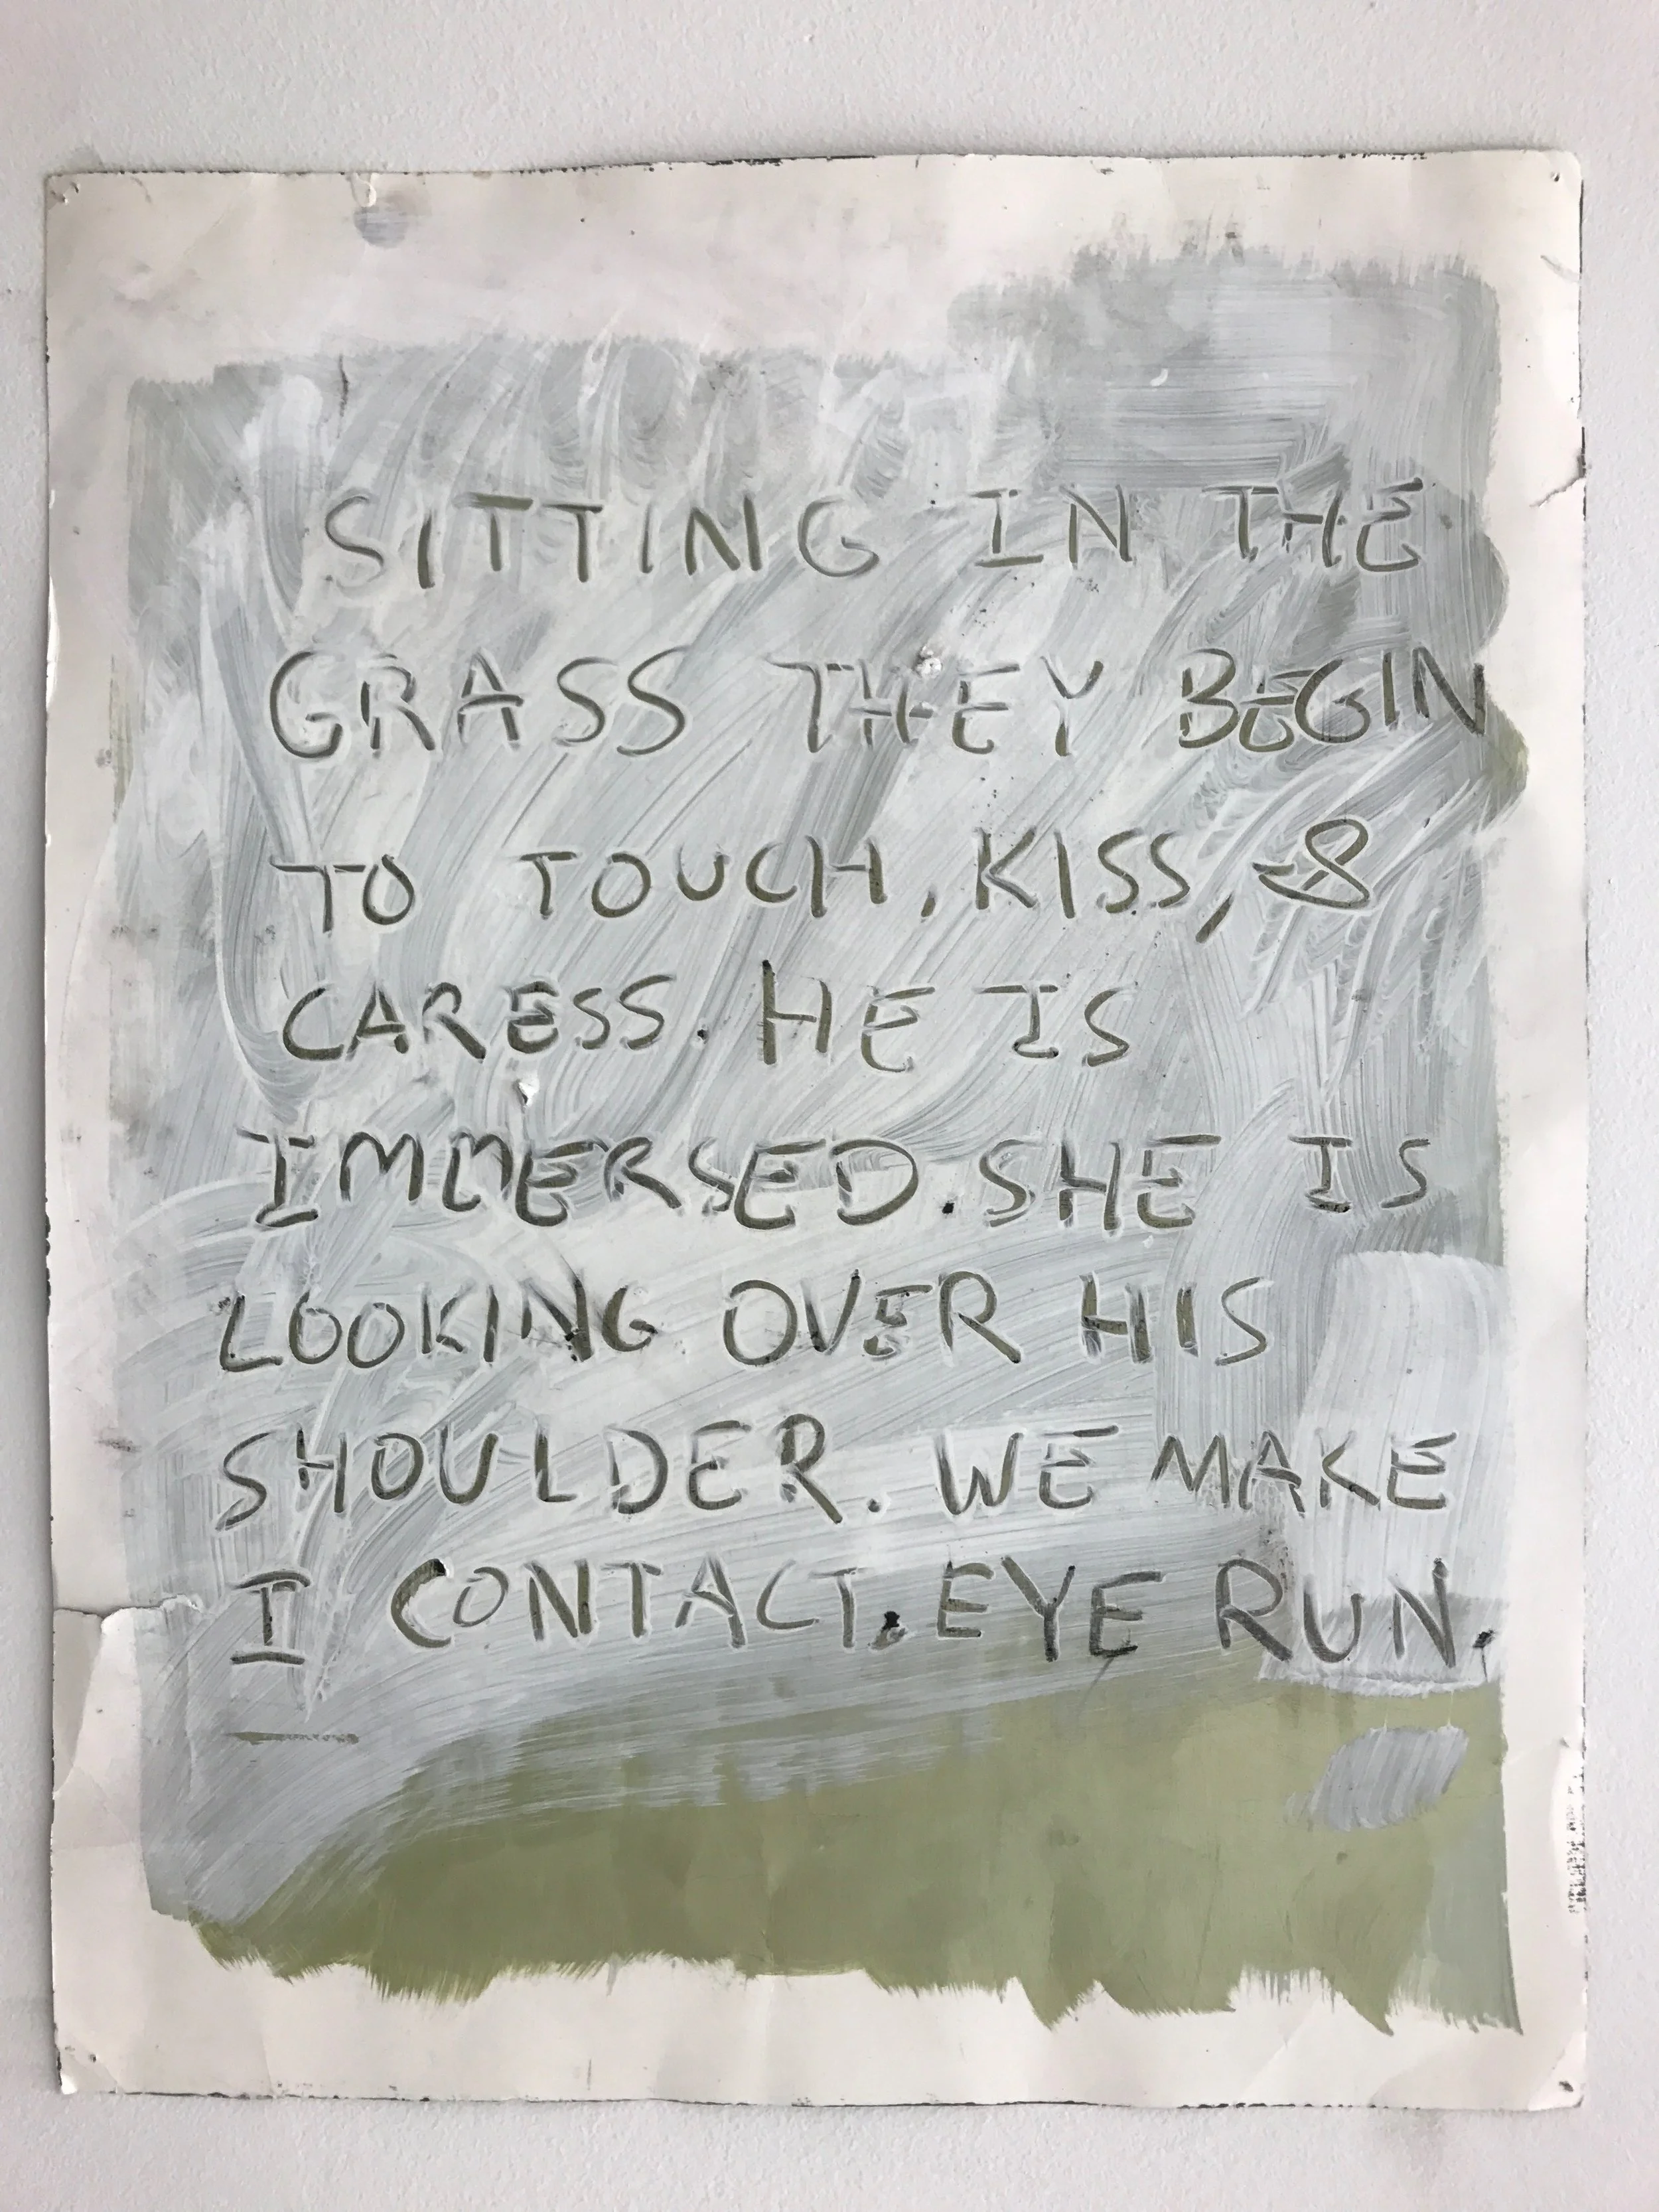 SITTING IN THE
GRASS THEY BEGIN
TO TOUCH, KISS, &
CARESS. HE IS
IMMERSED. SHE IS
LOOKING OVER HIS
SHOULDER. WE MAKE
I CONTACT. EYE RUN.